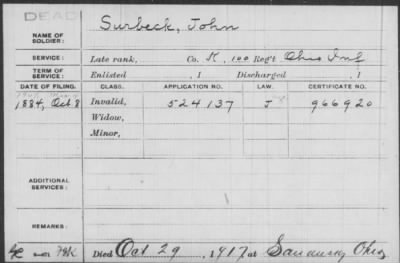 DEAD
NAME OF SOLDIER: Surbeck, John
SERVICE: Late rank, Co. K, 100 Reg't Ohio Inf
TERM OF SERVICE: Enlisted , 1 Discharged , 1
DATE OF FILING. CLASS. APPLICATION NO. LAW. CERTIFICATE NO.
1884, Oct 8 Invalid, 524137 J 966920
Widow,
Minor,
ADDITIONAL SERVICES:
REMARKS:
Died Oct 29, 1917 at Sandusky Ohio